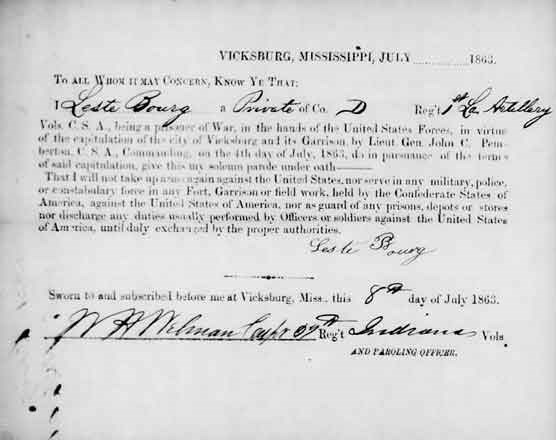 VICKSBURG, MISSISSIPPI, JULY ............... 1863.
TO ALL WHOM IT MAY CONCERN, KNOW YE THAT:
I Leste Bourg a Private of Co. D Reg't 1st La Artillery
Vols. C. S. A., being a prisoner of War, in the hands of the United States Forces, in virtue
of the capitulation of the city of Vicksburg and its Garrison, by Lieut. Gen. John C. Pem-
berton, C. S. A., Commanding, on the 4th day of July, 1863, do in pursuance of the terms
of said capitulation, give this my solemn parole under oath——
That I will not take up arms again against the United States, nor serve in any military, police,
or constabulary force in any Fort, Garrison or field work, held by the Confederate States of
America, against the United States of America, nor as guard of any prisons, depots or stores
nor discharge any duties usually performed by Officers or soldiers against the United States
of America, until duly exchanged by the proper authorities.
Leste Bourg
Sworn to and subscribed before me at Vicksburg, Miss., this 8th day of July 1863.
W H Welman Capt Reg't Indiana Vols
AND PAROLING OFFICER.